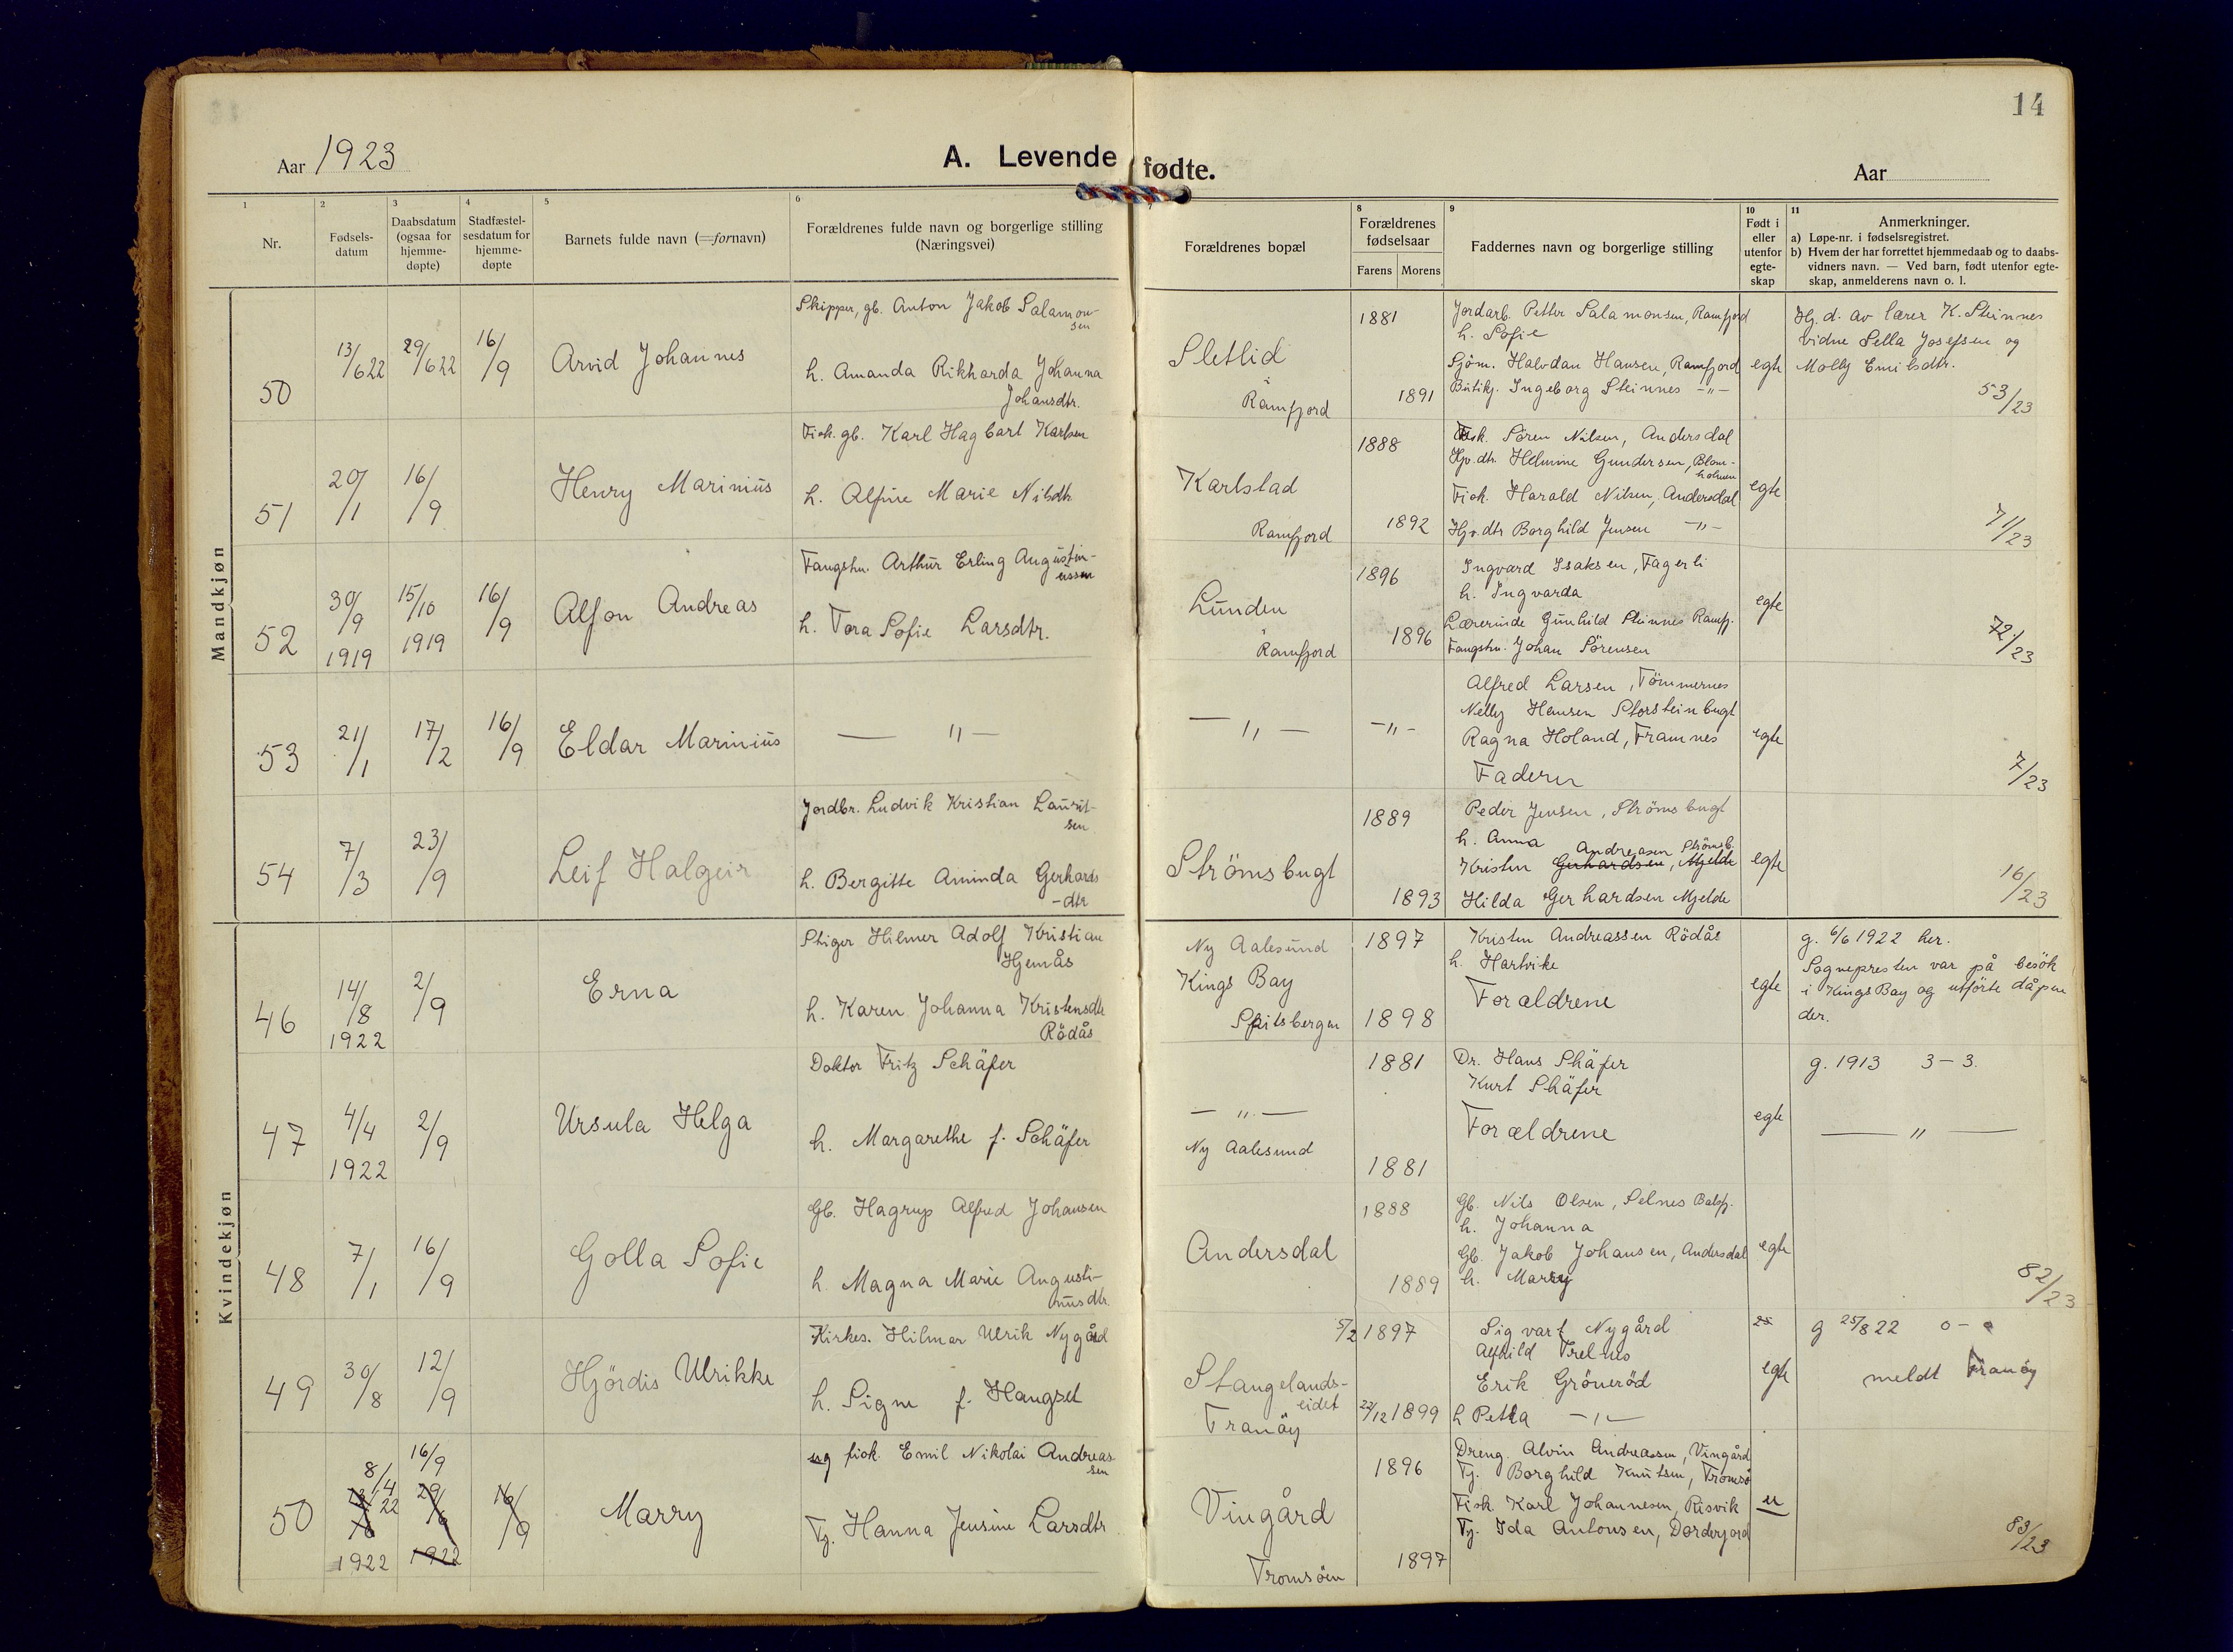 14
Aar 1923
A. Levende fødte.
Aar
1 2 3 4 5 6 8 9 10 11
Nr.
Fødsels-
datum
Daabsdatum
(ogsaa for
hjemme-
døpte)
Stadfæstel-
sesdatum for
hjemme-
døpte
Barnets fulde navn (=fornavn)
Forældrenes fulde navn og borgerlige stilling
(Næringsvei)
Forældrenes bopæl
Forældrenes
fødselsaar
Farens Morens
Faddernes navn og borgerlige stilling
Født i
eller
utenfor
egte-
skap
Anmerkninger.
a) Løpe-nr. i fødselsregistret.
b) Hvem der har forrettet hjemmedaab og to daabs-
vidners navn. — Ved barn, født utenfor egte-
skap, anmelderens navn o. l.
Mandkjøn
50
13/6 22
29/6 22
16/9
Arvid Johannes
Skipper, gb. Anton Jakob Salamon-
sen
h. Amanda Rikharda Johanna
Johansdtr.
Sletlid
Ramfjord
1881
1891
Jordarb. Petter Salamonsen, Ramfjord
h. Sofie
Sjöm. Halvdan Hansen, Ramfjord
Butikj. Ingeborg Steinnes -"-
egte
Hj. d. av lærer K. Steinnes
vidne Sella Josefsen og
Molly Emilsdtr.
53/23
51
20/1
16/9
Henry Marinius
Fisk. gb. Karl Hagbart Karlsen
h. Alfine Marie Nilsdtr
Karlstad
Ramfjord
1888
1892
Fisk. Sören Nilsen, Andersdal
Hjv. dtr. Helmine Gundersen, Blom-
holmen
Fisk. Harald Nilsen, Andersdal
Hjv. dtr Borghild Jensen -"-
egte
71/23
52
30/9
1919
15/10
1919
16/9
Alfon Andreas
Fangstm. Arthur Erling Augustin-
ussen
h. Tora Sofie Larsdtr.
Lunden
Ramfjord
1896
1896
Ingvard Isaksen, Fagerli
h. Ingvarda
Lærerinde Gunhild Steinnes Ramfj.
Fangstm. Johan Sörensen
egte
72/23
53
21/1
17/2
16/9
Eldar Marinius
— " —
— " —
- " -
Alfred Larsen, Tömmernes
Nelly Hansen Storsteinbugt
Ragna Holand, Framnes
Faderen
egte
7/23
54
7/3
23/9
Leif Halgeir
Jordbr. Ludvik Kristian Laurit-
sen
h. Bergitte Aminda Gerhards
-dtr
Strömsbugt
1889
1893
Peder Jensen, Strömsbugt
h. Anna
Andreasen Strömsb.
Kristen Gerhardsen, Mjelde
Hilda Gerhardsen Mjelde
egte
16/23
Kvindekjøn
46
14/8
1922
2/9
Erna
Stiger Hilmer Adolf Kristian
Hjemås
h. Karen Johanna Kristensdtr
Rödås
Ny Aalesund
Kings Bay
Spitsbergen
1897
1898
Kristen Andreassen Rödås
h. Hartvike
Forældrene
egte
g. 6/6 1922 her.
Sognepresten var på besök
i Kings Bay og utførte dåpen
der.
47
4/4
1922
2/9
Ursula Helga
Doktor Fritz Schäfer
h. Margarethe f. Schäfer
— " —
Ny Aalesund
1881
1881
Dr. Hans Shäfer
Kurt Shäfer
Forældrene
egte
g. 1913 3-3.
— " —
48
7/1
16/9
Golla Sofie
Gb. Hagrup Alfred Johansen
h. Magna Marie Augusti-
nusdtr.
Andersdal
1888
1889
Gb. Nils Olsen, Selnes Balsfj.
h. Johanna
Gb. Jakob Johansen, Andersdal
h. Marry
egte
82/23
49
30/8
12/9
Hjördis Ulrikke
Kirkes. Hilmar Ulrik Nygård
h. Signe f. Haugset
Stangelands-
eidet
Tranöy
5/2 1897
22/12 1899
Sigvart Nygård
Alfhild Trelnes
Erik Gröneröd
h Petta - " -
egte
g 25/8 22 0-0
meldt Tranöy
50
8/4 22
1922
16/9
29/6
1922
16/9
Marry
ug fisk. Emil Nikolai Andreas-
sen
Tj. Hanna Jensine Larsdtr
Vingård
Tromsöen
1896
1897
Dreng. Alvin Andreassen, Vingård
Tj. Borghild Knutsen, Tromsö
Fisk. Karl Johannesen, Risvik
Tj. Ida Antonsen, Dorderjord
u
83/23